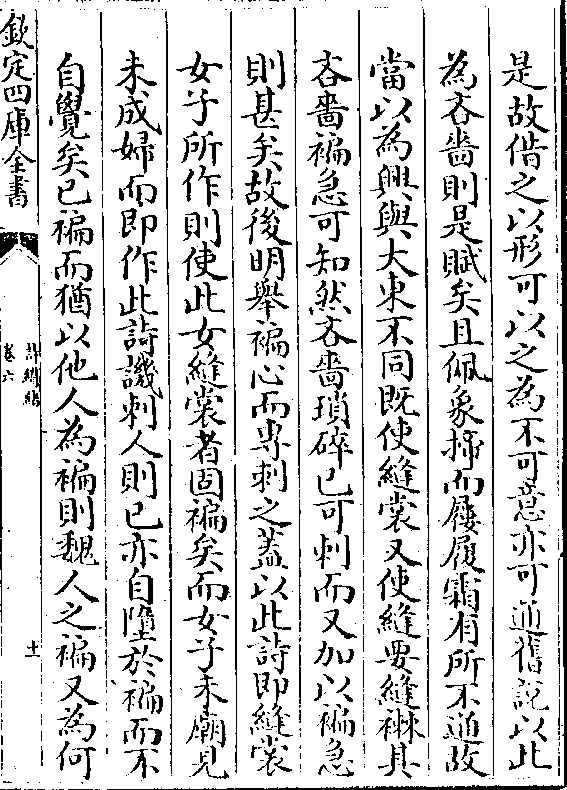 是故借之以形可以之為不可意亦可通舊說以此
為吝嗇則是賦矣且佩象揥而屨履霜有所不通故
當以為興與大東不同既使縫裳又使縫要縫襋其
吝嗇褊急可知然吝嗇瑣碎已可刺而又加以褊急
則甚矣故後明舉褊心而專刺之蓋以此詩即縫裳
女子所作則使此女縫裳者固褊矣而女子未廟見
未成婦而即作此詩譏刺人則已亦自墮於褊而不
自覺矣已褊而猶以他人為褊則魏人之褊又為何
欽定四庫全書
卷六
十一